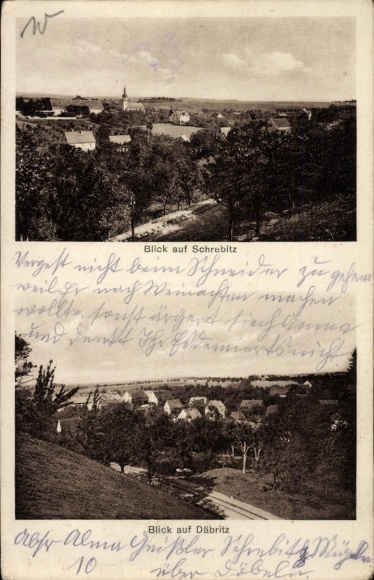 W
Blick auf Schrebitz
Vergest nicht beim Schneider zu gehem
weil Er nach Weinachten machen
wollte sonst ärgert siech Anna
und denkt Ihr nicht
Blick auf Däbritz
Abs. Alma Geißler Schrebitz Mügeln
10 über Döbeln